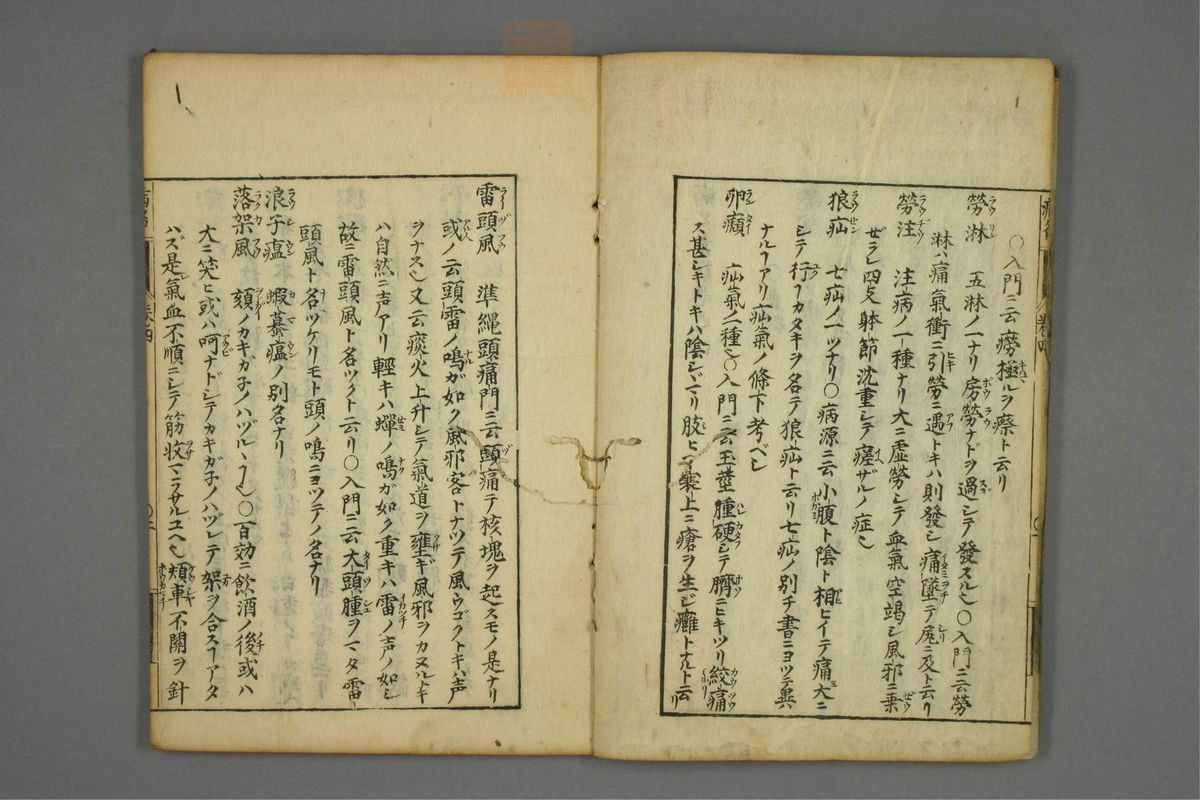 〇入門ニ云癆極ルヲ瘵ト云リ
勞淋 五淋ノ一ナリ房勞ナドヲ過シテ發スル也〇入門ニ云勞
淋ハ痛氣衝ニ引勞ニ遇トキハ則發シ痛墜テ尻ニ及ト云リ
勞注 注病ノ一種ナリ大ニ虛勞シテ血氣空竭シ風邪ニ乗
ゼラレ四支躰節沈重シテ瘥ザルノ症也
狼疝 七疝ノ一ツナリ〇病源ニ云小腹ト陰ト相ヒイテ痛大ニ
シテ行ヿカタキヲ名テ狼疝ト云リ七疝ノ別チ書ニヨツテ異
ナルヿアリ疝氣ノ條下考ベシ
卵癩 疝氣ノ一種也〇入門ニ云玉莖腫硬シテ臍ニヒキツリ絞痛
ス甚シキトキハ陰シヾマリ肢ヒヘ囊上ニ瘡ヲ生ジ癰トナルト云リ
雷頭風 準縄頭痛門ニ云頭痛テ核塊ヲ起スモノ是ナリ
或ノ云頭雷ノ鳴ガ如ク風邪客トナツテ風ウゴクトキハ声
ヲナス也又云痰火上升シテ氣道ヲ壅ギ風邪ヲカヌルトキ
ハ自然ニ声アリ輕キハ蟬ノ鳴ガ如ク重キハ雷ノ声ノ如シ
故ニ雷頭風ト名ツクト云リ〇入門ニ云大頭腫ヲマタ雷
頭風ト名ツケリモト頭ノ鳴ニヨツテノ名ナリ
浪子瘟 蝦蟇瘟ノ別名ナリ
落架風 頦ノカキガ子ノハヅルヽ也〇百効ニ飲酒ノ後或ハ
大ニ笑ヒ或ハ呵ナドシテカキガ子ノハヅレテ架ヲ合スヿアタ
ハズ是氣血不順ニシテ筋收マラザルユヘ也頬車不開ヲ針